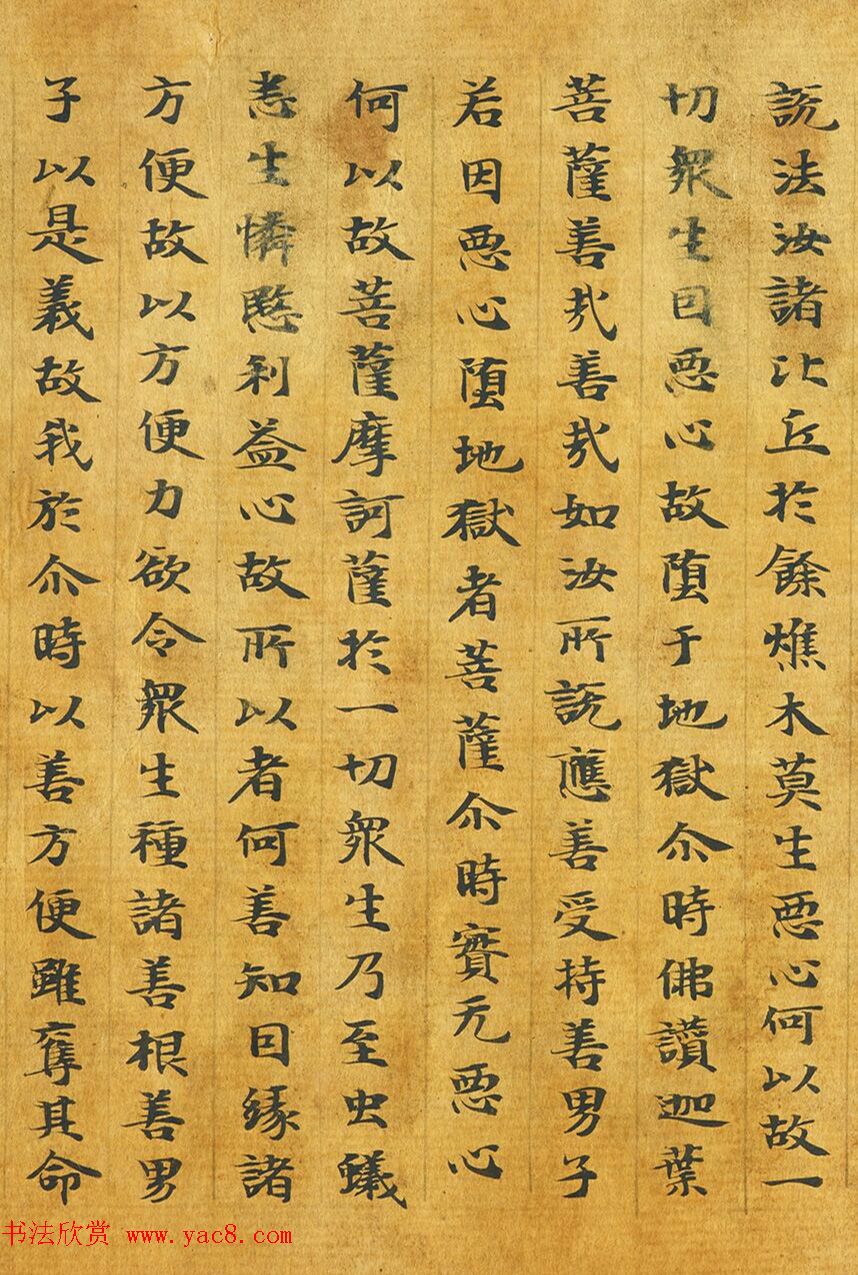 說法汝諸比丘於餘燋木莫生惡心何以故一
切眾生因惡心故堕于地獄尒時佛讃迦葉
菩薩善㢤善㢤如汝所說應善受持善男子
若因惡心堕地獄者菩薩尒時實无惡心
何以故菩薩摩訶薩於一切眾生乃至虫蟻
悉生憐愍利益心故所以者何善知因緣諸
方便故以方便力欲令眾生種諸善根善男
子以是義故我於尒時以善方便雖奪其命
书法欣赏 www.yac8.com